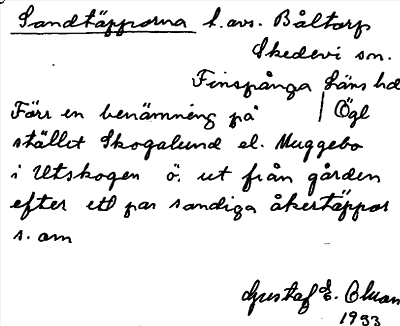 Sandtäpporna l. avs. Båltorp
Skedevi sn.
Finspånga läns hd
Förr en benämning på | Ögl
stället Skogalund el. Muggebo
i Utskogen ö. ut från gården
efter ett par sandiga åkertäppor
s. om
Gustaf E.
1933